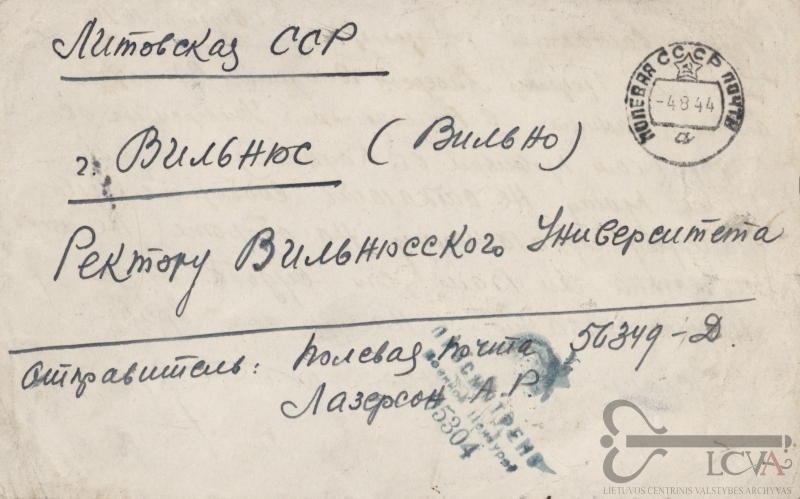 Литовская ССР
СССР ПОЛЕВАЯ ПОЧТА
-4 8 44
а
г. Вильнюс (Вильно)
Ректору Вильнюсского Университета
Отправитель: Полевая Почта 56349-Д.
Лазерсон А.Р.
ПРОСМОТРЕНО
Военной Цензурой
15304
LCVA
LIETUVOS CENTRINIS VALSTYBĖS ARCHYVAS